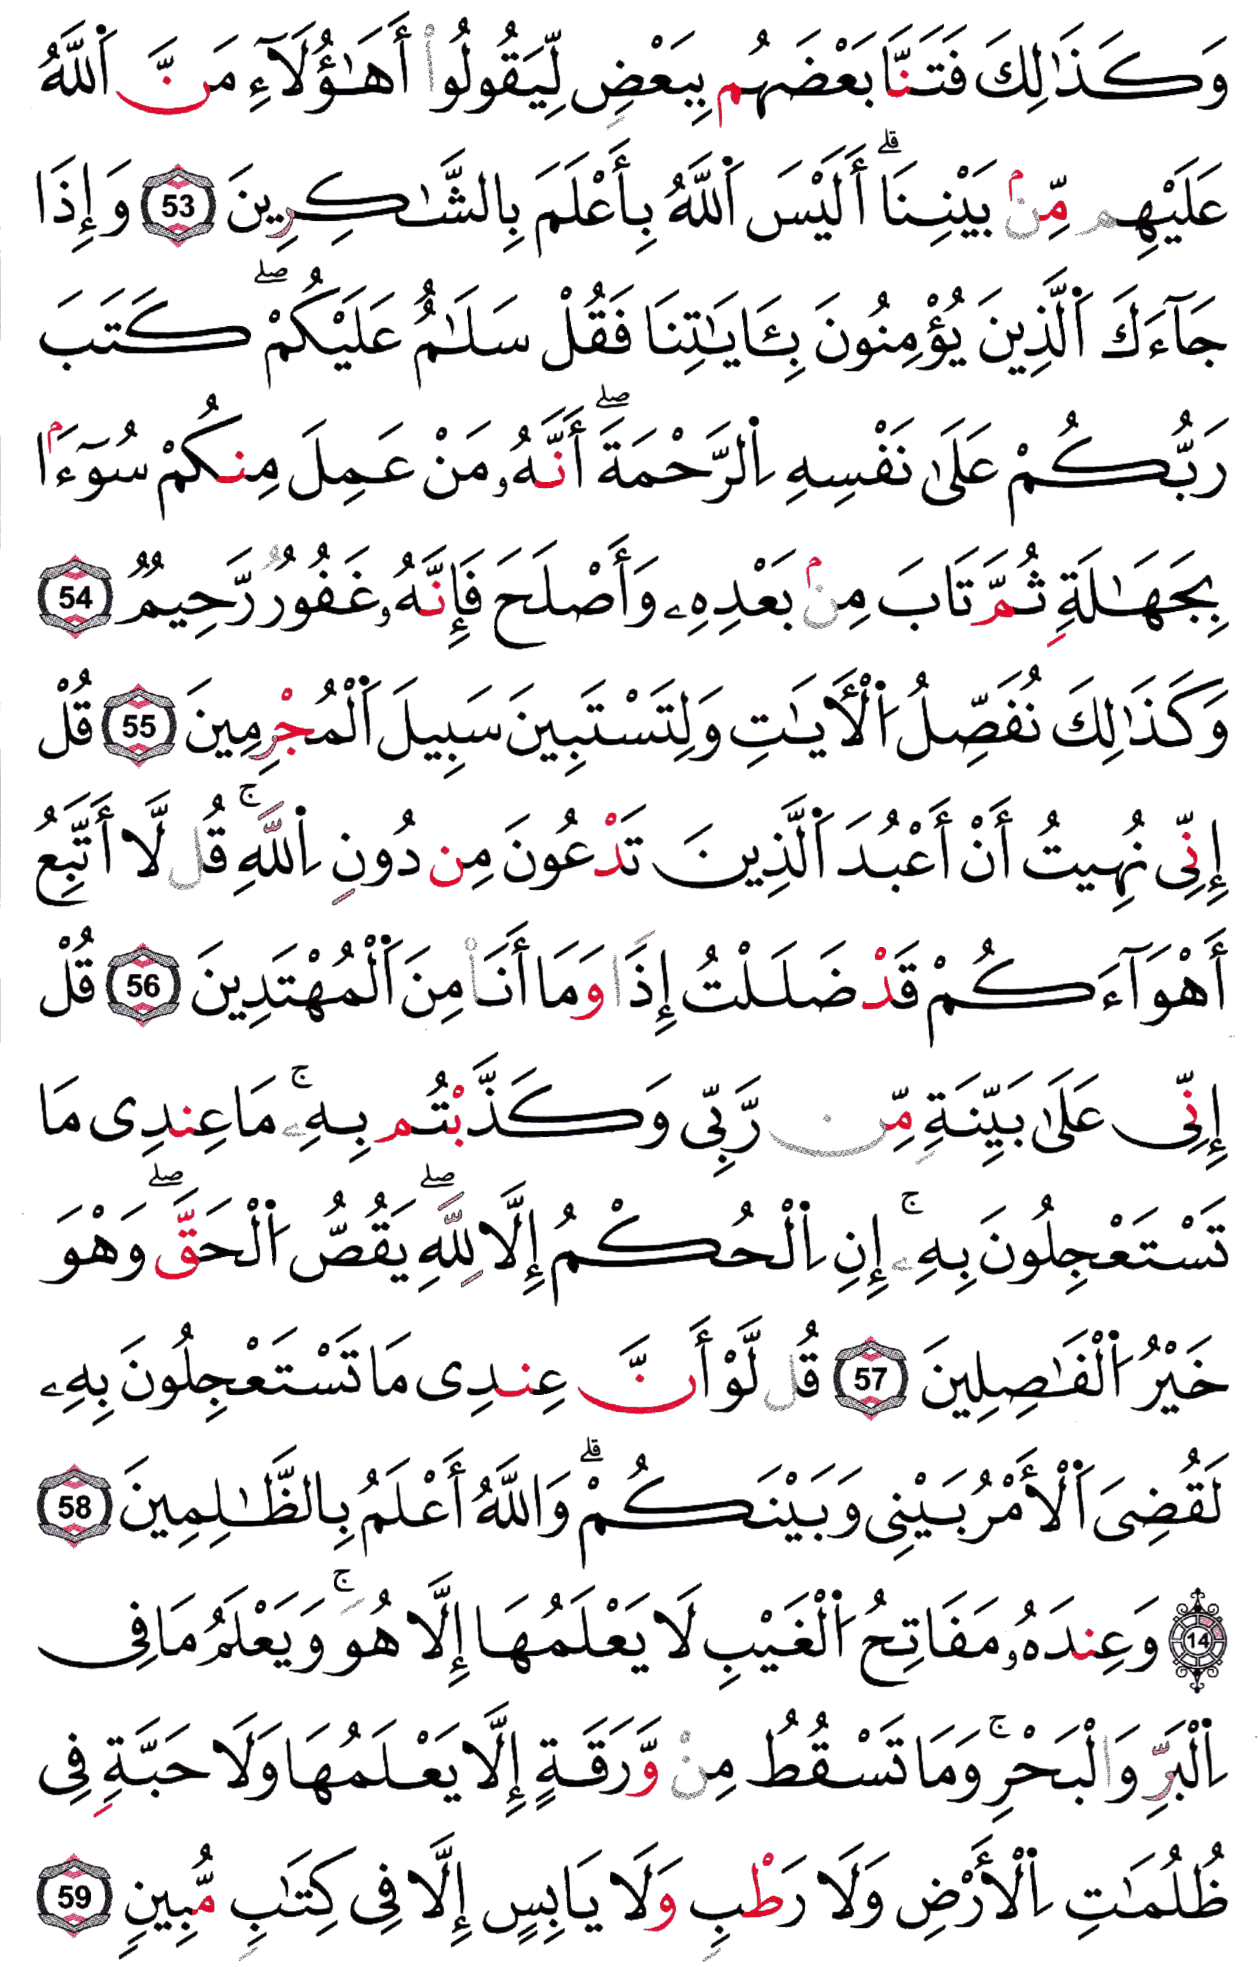 وَكَذَٰلِكَ فَتَنَّا بَعْضَهُم بِبَعْضٖ لِّيَقُولُوا۟ أَهَٰٓؤُلَآءِ مَنَّ اَ۬للَّهُ
عَلَيْهِم مِّنۢ بَيْنِنَاۗ أَلَيْسَ اَ۬للَّهُ بِأَعْلَمَ بِالشَّٰكِرِينَ 53 وَإِذَا
جَآءَكَ اَ۬لَّذِينَ يُؤْمِنُونَ بِـَٔايَٰتِنَا فَقُلْ سَلَٰمٌ عَلَيْكُمْۖ كَتَبَ
رَبُّكُمْ عَلَىٰ نَفْسِهِ اِ۬لرَّحْمَةَۖ أَنَّهُۥ مَنْ عَمِلَ مِنكُمْ سُوٓءَۢا
بِجَهَٰلَةٖ ثُمَّ تَابَ مِنۢ بَعْدِهِۦ وَأَصْلَحَ فَإِنَّهُۥ غَفُورٞ رَّحِيمٞ 54
وَكَذَٰلِكَ نُفَصِّلُ اُ۬لْأٓيَٰتِ وَلِتَسْتَبِينَ سَبِيلَ اَ۬لْمُجْرِمِينَ 55 قُلْ
إِنِّي نُهِيتُ أَنْ أَعْبُدَ اَ۬لَّذِينَ تَدْعُونَ مِن دُونِ اِ۬للَّهِۚ قُل لَّا أَتَّبِعُ
أَهْوَآءَكُمْ قَدْ ضَلَلْتُ إِذٗا وَمَا أَنَا۠ مِنَ اَ۬لْمُهْتَدِينَ 56 قُلْ
إِنِّي عَلَىٰ بَيِّنَةٖ مِّن رَّبِّي وَكَذَّبْتُم بِهِۦۚ مَا عِندِي مَا
تَسْتَعْجِلُونَ بِهِۦۚ إِنِ اِ۬لْحُكْمُ إِلَّا لِلَّهِۖ يَقُصُّ اُ۬لْحَقَّۖ وَهْوَ
خَيْرُ اُ۬لْفَٰصِلِينَ 57 قُل لَّوْ أَنَّ عِندِي مَا تَسْتَعْجِلُونَ بِهِۦ
لَقُضِيَ اَ۬لْأَمْرُ بَيْنِي وَبَيْنَكُمْۗ وَاللَّهُ أَعْلَمُ بِالظَّٰلِمِينَ 58
14 وَعِندَهُۥ مَفَاتِحُ اُ۬لْغَيْبِ لَا يَعْلَمُهَا إِلَّا هُوَۚ وَيَعْلَمُ مَا فِي
اِ۬لْبَرِّ وَالْبَحْرِۚ وَمَا تَسْقُطُ مِنْ وَّرَقَةٍ إِلَّا يَعْلَمُهَا وَلَا حَبَّةٖ فِي
ظُلُمَٰتِ اِ۬لْأَرْضِ وَلَا رَطْبٖ وَلَا يَابِسٍ إِلَّا فِي كِتَٰبٖ مُّبِينٖ 59